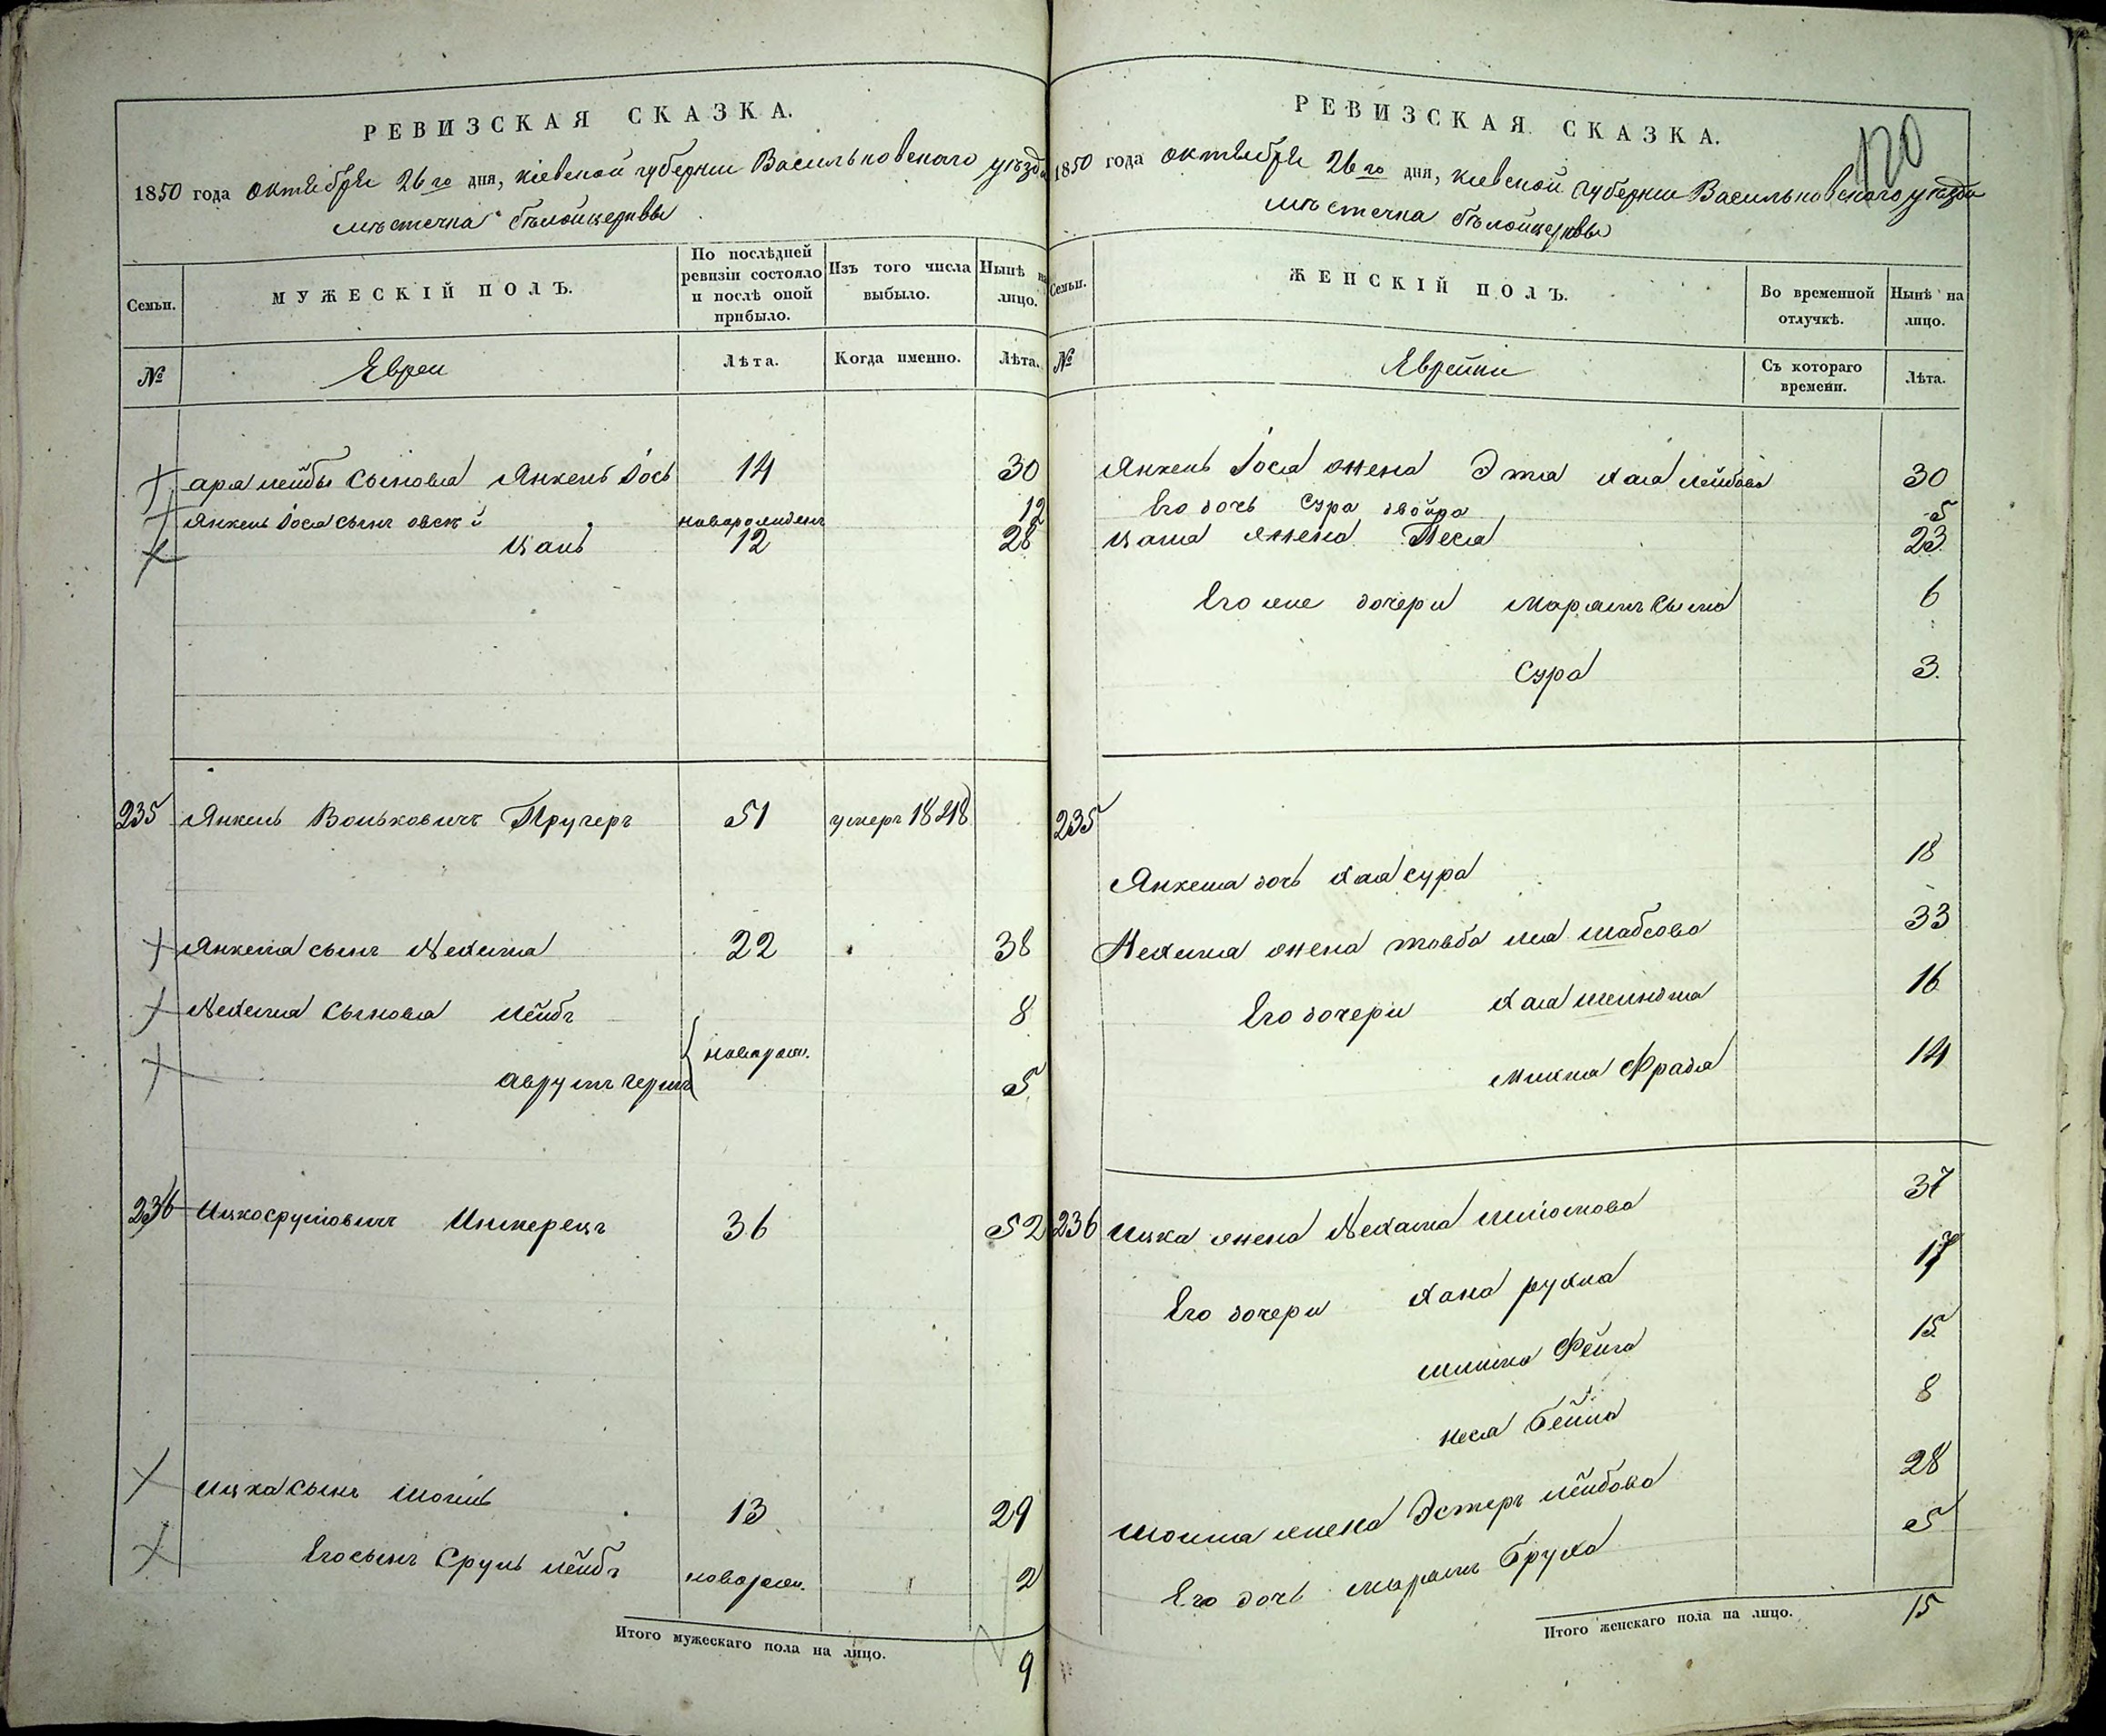 РЕВИЗСКАЯ СКАЗКА.
1850 года октября 26го дня, кіевской губернии Васильковскаго уѣзда
мѣстечка бѣлойцерквы
Семьи. МУЖЕСКІЙ ПОЛЪ. По послѣдней ревизіи состояло и послѣ оной прибыло. Изъ того числа выбыло. Нынѣ на лицо.
№ Евреи Лѣта. Когда именно. Лѣта.
лейбы сыновья Янкель Iось 14 30
Янкель Iося сынъ новорожденъ 12
12 28
235 Янкель Вольковичъ Тручеръ 51 умеръ 1848
Янкеля сынъ Нехима 22 38
Нехима сыновья лейбъ 8
новорож.
Аврумъ гершъ 5
236 Ицко сруловичъ Имперецъ 36 52
Ицка сынъ Шоилъ 13 29
Его сынъ Сруль лейбъ новорож. 2
Итого мужескаго пола на лицо. 9
120
РЕВИЗСКАЯ СКАЗКА.
1850 года октября 26го дня, кіевской губернии Васильковскаго уѣзда
мѣстечка бѣлойцерквы
Семьи. ЖЕНСКІЙ ПОЛЪ. Во временной отлучкѣ. Нынѣ на лицо.
№ Еврейки Съ котораго времени. Лѣта.
Янкель Iося жена Эта хая лейбова 30
Его дочь Сура двойра 5
жена Песя 23
Его же дочери марьямъ сыма 6
Сура 3.
235
Янкеля дочь хая сура 18
Нехима жена товба шабсова 33
Его дочери хая шейндля 16
Фрадя 14
236 Ицка жена Нехама шліомова 37
Его дочери хана рухля 17
Фейга 15
неся бейла 8
Шоила жена Эстеръ лейбова 28
Его дочь марьямъ бруха 5
Итого женскаго пола на лицо. 15